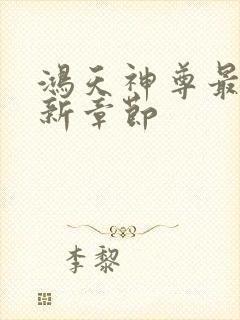 鴻天神尊最
新章節
李黎